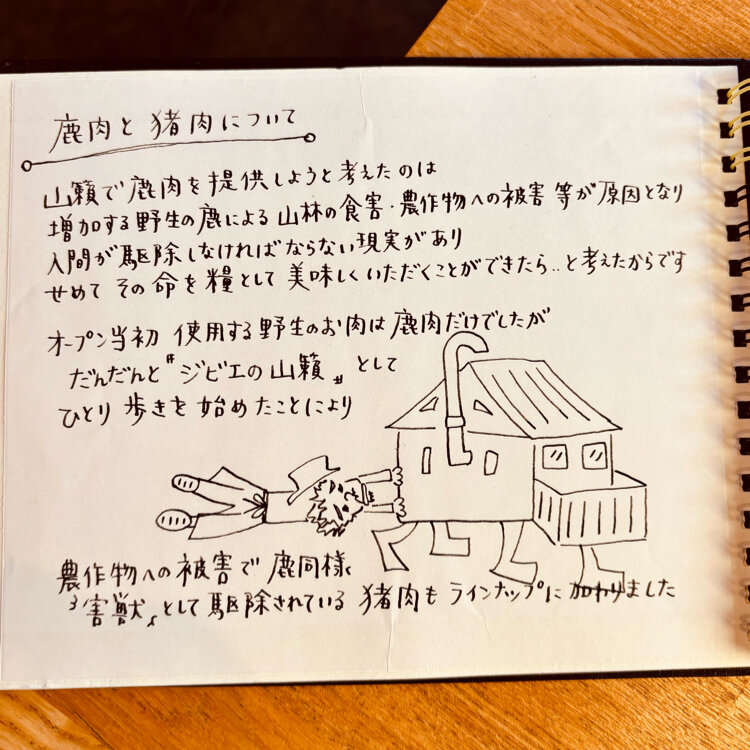 鹿肉と猪肉について
山籟で鹿肉を提供しようと考えたのは
増加する野生の鹿による山林の食害・農作物への被害等が原因となり
人間が駆除しなければならない現実があり
せめてその命を糧として美味しくいただくことができたら..と考えたからです
オープン当初 使用する野生のお肉は鹿肉だけでしたが
だんだんと『ジビエの山籟』として
ひとり歩きを始めたことにより
農作物への被害で鹿同様
『害獣』として駆除されている猪肉もラインナップに加わりました